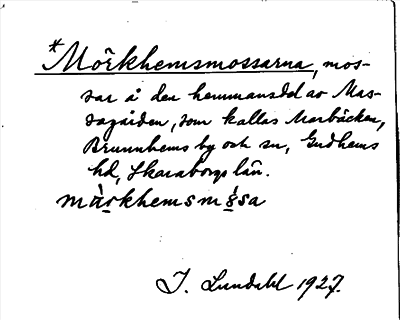 *Mörkhemsmossarna, mos-
sar å den hemmansdel av Mas-
sagården, som kallas Marbäcken,
Brunnhems by och sn, Gudhems
hd, Skaraborgs län.
I. Lundahl 1927.